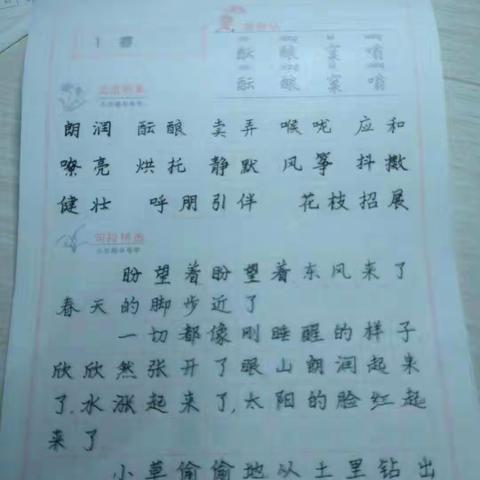 1 春
酝 酿 窠 嘹
酝 酿 窠
朗润 酝酿 卖弄 喉咙 应和
嘹亮 烘托 静默 风筝 抖擞
健壮 呼朋引伴 花枝招展
盼望着盼望着东风来了
春天的脚步近了
一切都像刚睡醒的样子
欣欣然张开了眼山朗润起来
了,水涨起来了,太阳的脸红起
来了
小草偷偷地从土里钻出